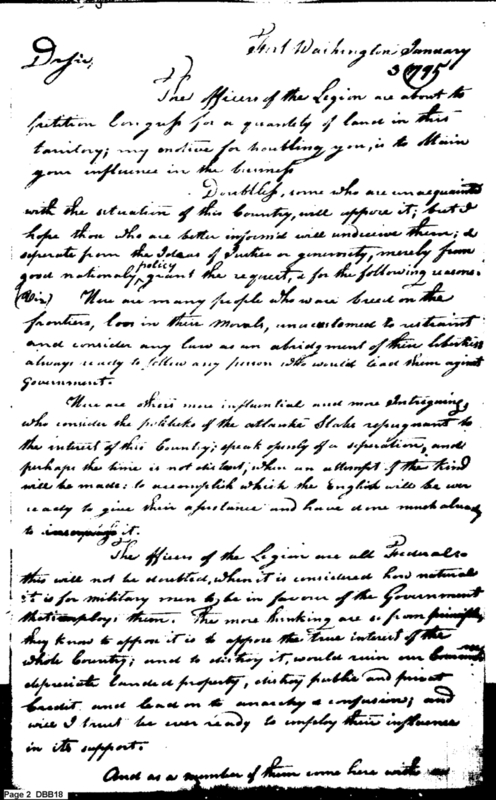 Fort Washington January
3 1795
Dr Sir,
The officers of the Legion are about to
petition Congress for a quantety of land in this
territory; my motive for troubling you, is to obtain
your influence in the business
Doubtless, some who are unaquainted
with the situation of this Country, will oppose it; but I
hope those who are better inform'd will undeceive them; &
seperate from the Ideas of Justice or generosity, merely from
good national policy grant the request, & for the following reasons.
(Viz) Here are many people who ware breed on the
frontiers, loos in there Morals, unacustomed to restraint
and consider any law as an abridgment of their liberties
always ready to follow any person who would lead them against
Government.
Here are others more influential and more Intriguing,
who consider the politicks of the atlantic States repugnant to
the interest of this Country; speak openly of a seperation, and
perhaps the time is not distant, when an attempt of the kind
will be made: to accomplish which the English will be ever
ready to give their assistance and have done much already
to it.
The officers of the Legion are all Federal &
this will not be doubted, when it is considered how natural
it is for military men to be in favour of the Government
that employs them. The more thinking are so from principle,
they know to oppose it is to oppose the true interest of the
whole Country; and to distroy it, would ruin our
depreciate landed property, distroy public and privat
Credit and lead on to anarchy & confusion; and
will I trust be ever ready to employ their influence
in its support.
And as a number of them come here with
Page 2 DBB18